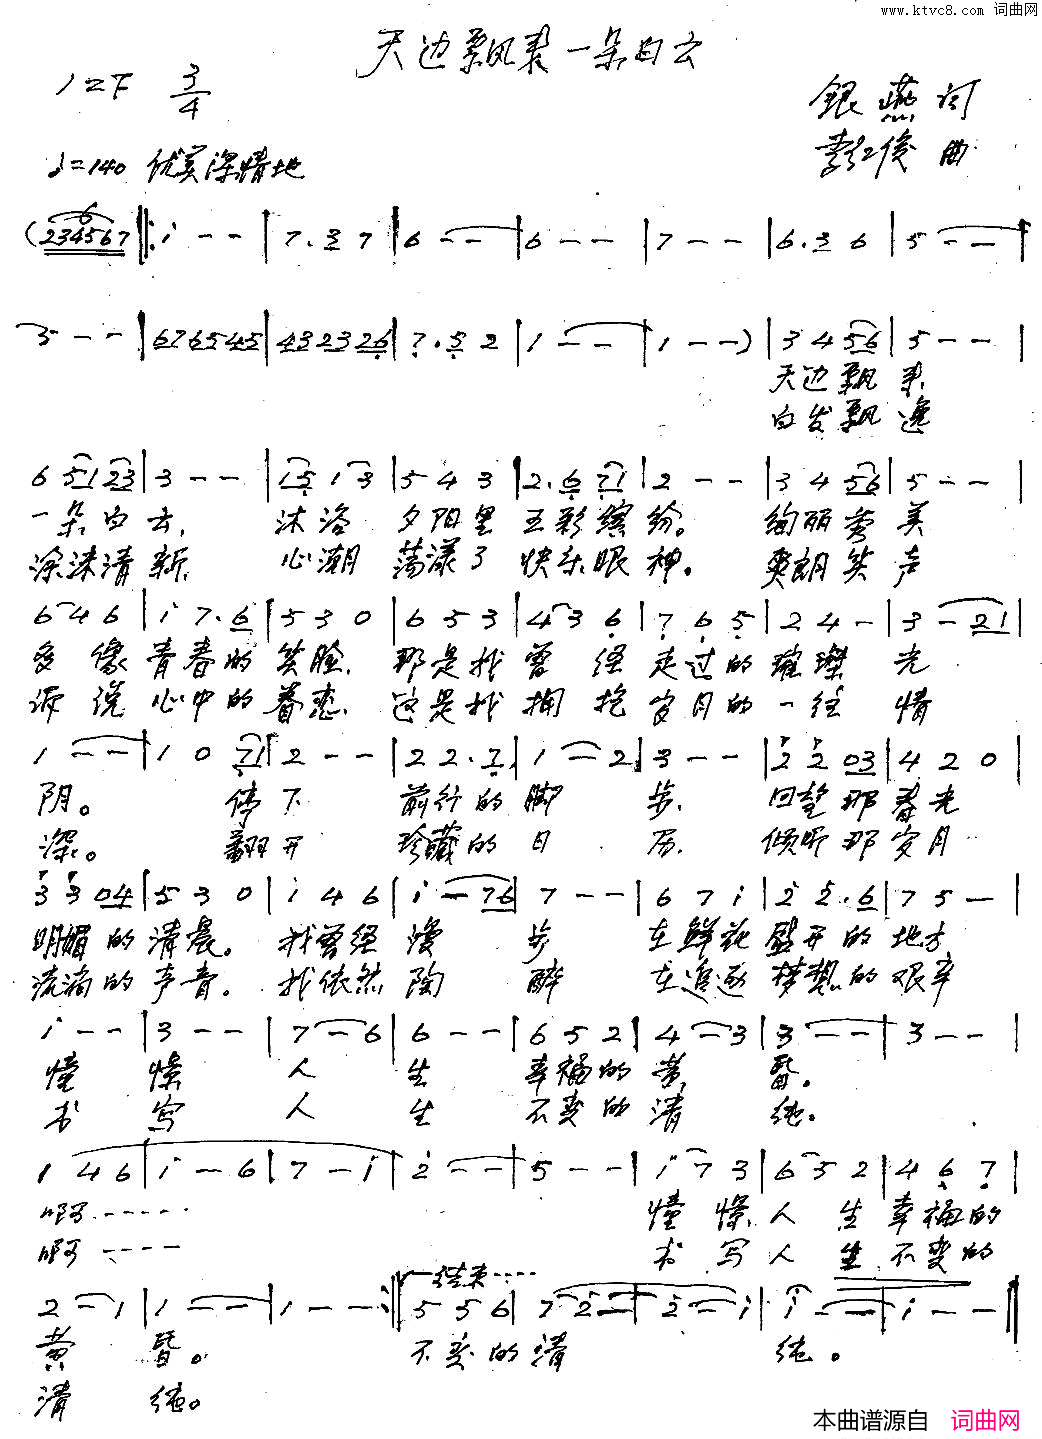 www.ktvc8.com 词曲网
天边飘来一朵白云
1=F 3/4
银燕 词
李红俊 曲
♩=140 优美深情地
(234567 |: i - - | 7.3 7 | 6 - - | 6 - - | 7 - - | 6.3 6 | 5 - - |
3 - - | 676545 | 432326 | 7.5 2 | 1 - - | 1 - -) | 3 4 56 | 5 - - |
天边飘来
白发飘逸
6 51 23 | 3 - - | 15 1 3 | 5 4 3 | 2.6 71 | 2 - - | 3 4 56 | 5 - - |
一朵白云, 沐浴夕阳里五彩缤纷。绚丽秀美
涂沫清新, 心潮荡漾了快乐眼神。爽朗笑声
6 4 6 | i 7.6 | 5 3 0 | 6 5 3 | 4 3 6 | 7 6 5 | 2 4 - | 3 - 21 |
多像青春的笑脸, 那是我曾经走过的璀璨光
诉说心中的眷恋, 这是我拥抱岁月的一往情
1 - - | 1 0 71 | 2 - - | 2 2.7 | 1 - 2 | 3 - - | 2 2 03 | 4 2 0 |
阴。停下前行的脚步, 回望那春光
深。翻开珍藏的日历, 倾听那岁月
3 3 04 | 5 3 0 | i 4 6 | i - 76 | 7 - - | 6 7 i | 2 2.6 | 7 5 - |
明媚的清晨。我曾经漫步在鲜花盛开的地方
流淌的声音。我依然陶醉在追逐梦想的艰辛
i - - | 3 - - | 7 - 6 | 6 - - | 6 5 2 | 4 - 3 | 3 - - | 3 - - |
憧憬人生幸福的黄昏。
书写人生不变的清纯。
1 4 6 | i - 6 | 7 - i | 2 - - | 5 - - | i 7 3 | 6 5 2 | 4 6 7 |
啊 ····· 憧憬人生幸福的
啊 ···· 书写人生不变的
结束 ····
2 - 1 | 1 - - | 1 - - :| 5 5 6 | 7 2 - | 2 - i | i - - | i - - |
黄昏。不变的清纯。
清纯。
本曲谱源自 词曲网